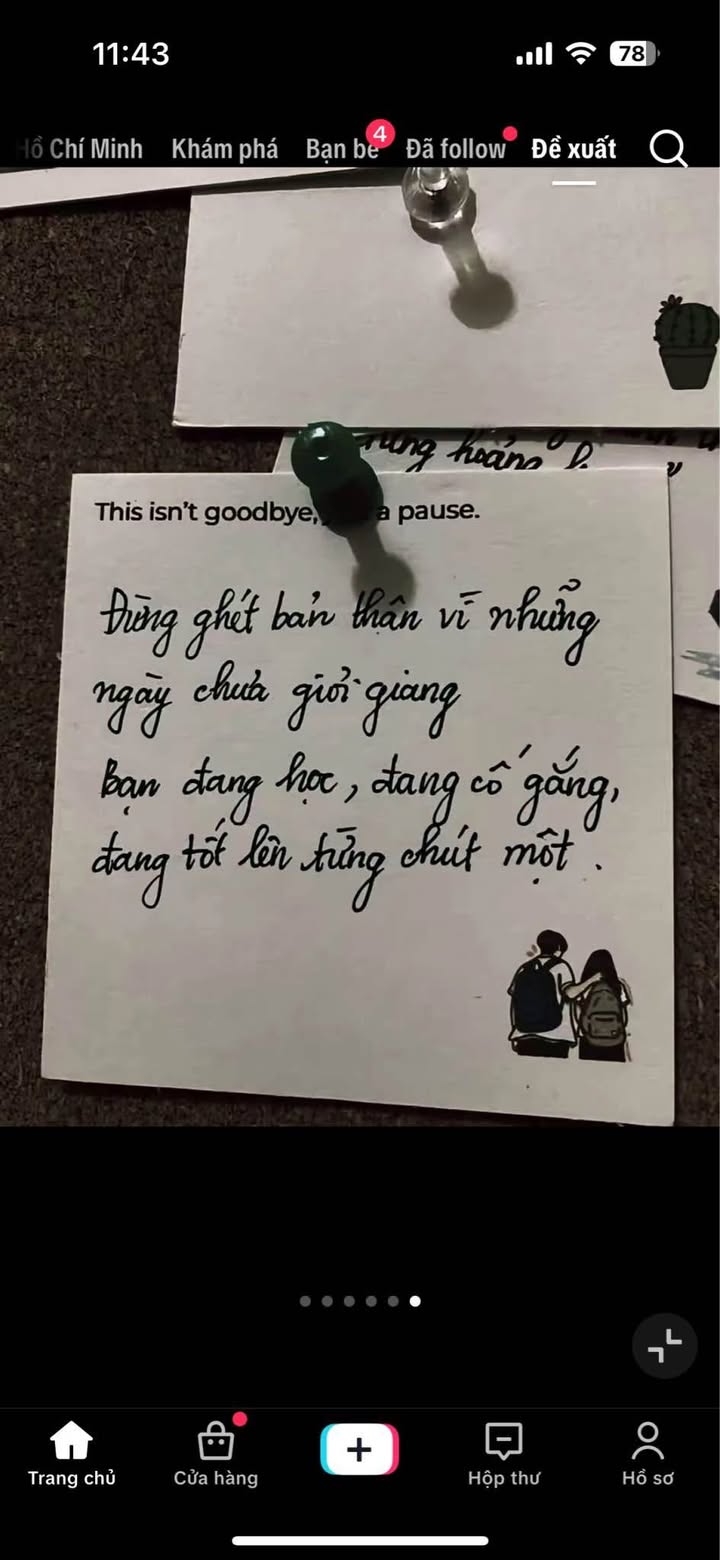 11:43
78
Hồ Chí Minh Khám phá Bạn bè 4 Đã follow Đề xuất
hoảng
This isn't goodbye, a pause.
Đừng ghét bản thân vì những
ngày chưa giỏi giang
Bạn đang học, đang cố gắng,
đang tốt lên từng chút một.
Trang chủ Cửa hàng Hộp thư Hồ sơ